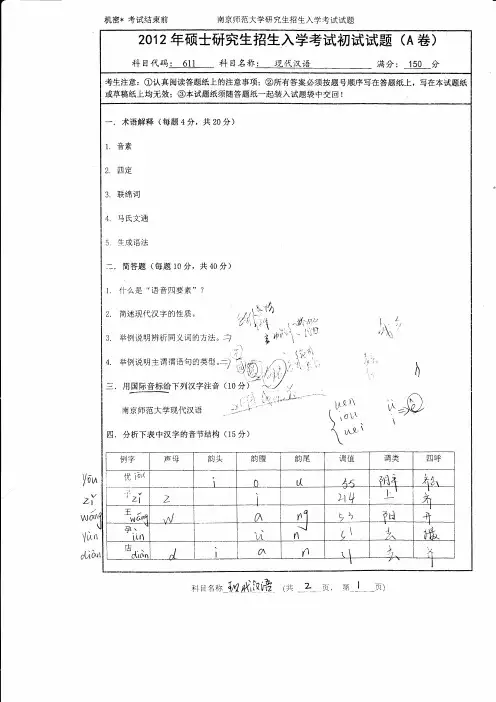 机密* 考试结束前 南京师范大学研究生招生入学考试试题
2012 年硕士研究生招生入学考试初试试题（A 卷）
科目代码： 611 科目名称： 现代汉语 满分： 150 分
考生注意：①认真阅读答题纸上的注意事项；②所有答案必须按题号顺序写在答题纸上，写在本试题纸
或草稿纸上均无效；③本试题纸须随答题纸一起装入试题袋中交回！
一. 术语解释（每题 4 分，共 20 分）
1. 音素
2. 四定
3. 联绵词
4. 马氏文通
5. 生成语法
二. 简答题（每题 10 分，共 40 分）
1. 什么是“语音四要素”？
2. 简述现代汉字的性质。
3. 举例说明辨析同义词的方法。
4. 举例说明主谓谓语句的类型。
三. 用国际音标给下列汉字注音（10 分）
南京师范大学现代汉语
uen
iou
uei
四. 分析下表中汉字的音节结构（15 分）
例字 声母 韵头 韵腹 韵尾 调值 调类 四呼
yōu 优 iōu i o u 55 阴平
zǐ 子 zǐ z i 214 上 齐
wáng 王 wáng w a ng 53 阳 开
yùn 孕 ün ü n 51 去 撮
diàn 店 diàn d i a n 51 去 齐
科目名称 现代汉语 (共 2 页，第 1 页)